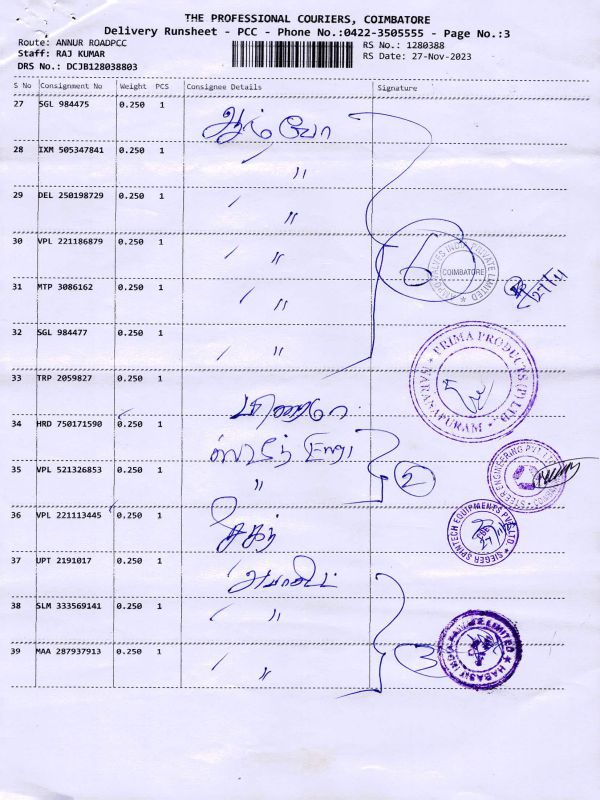 THE PROFESSIONAL COURIERS, COIMBATORE
Delivery Runsheet - PCC - Phone No.:0422-3505555 - Page No.:3
Route: ANNUR ROADPCC RS No.: 1280388
Staff: RAJ KUMAR RS Date: 27-Nov-2023
DRS No.: DCJB128038803
S No Consignment No Weight PCS Consignee Details Signature
27 SGL 984475 0.250 1
28 IXM 505347841 0.250 1 〃
29 DEL 250198729 0.250 1 〃
30 VPL 221186879 0.250 1 〃 6 COIMBATORE
31 MTP 3086162 0.250 1 〃 27/11
32 SGL 984477 0.250 1 〃
PRIMA PRODUCTS (P) LTD. KARYNAPURAM
33 TRP 2059827 0.250 1
34 HRD 750171590 0.250 1
35 VPL 521326853 0.250 1 〃 2
36 VPL 221113445 0.250 1 SIEGER SPINTECH EQUIPMENTS PVT LTD.
37 UPT 2191017 0.250 1
38 SLM 333569141 0.250 1 〃
39 MAA 287937913 0.250 1 〃 3